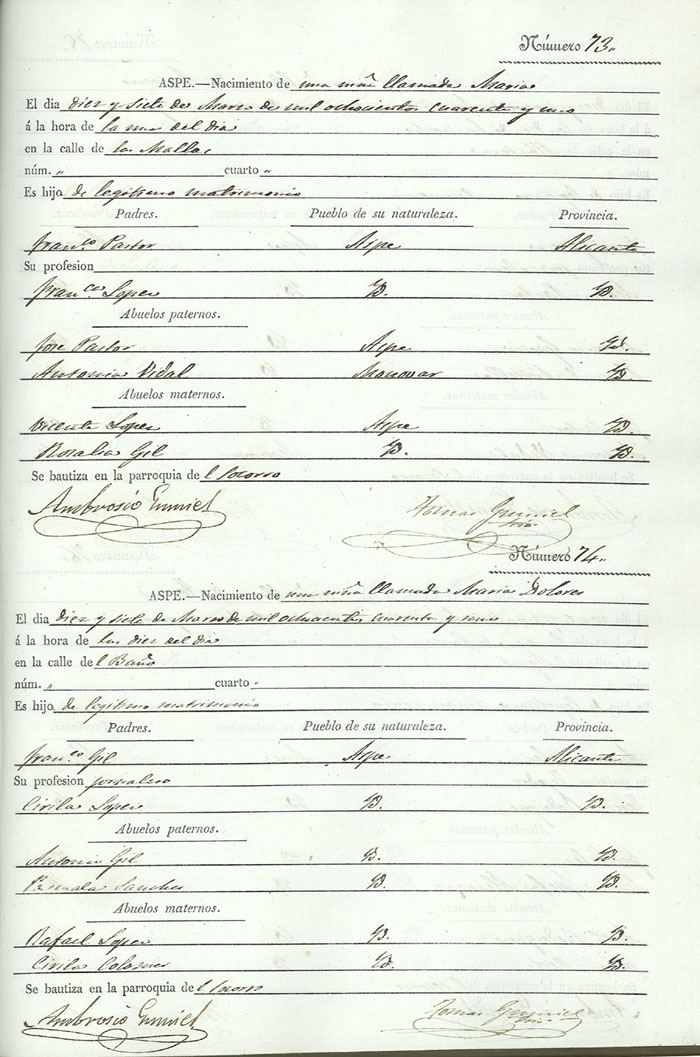 Número 73.
ASPE.—Nacimiento de una niña llamada Maria
El dia diez y siete de Marzo de mil ochocientos cuarenta y uno
á la hora de la una del dia
en la calle de la Malla
núm. „ cuarto „
Es hijo de legitimo matrimonio
Padres. Pueblo de su naturaleza. Provincia.
Fran.co Pastor Aspe Alicante
Su profesion
Fran.ca Lopez Yd. Yd.
Abuelos paternos.
Jose Pastor Aspe Yd.
Antonia Vidal Monovar Yd.
Abuelos maternos.
Vicente Lopez Aspe Yd.
Rosalia Gil Yd. Yd.
Se bautiza en la parroquia de l Socorro
Ambrosio
Tomas
Número 74.
ASPE.—Nacimiento de una niña llamada Maria Dolores
El dia diez y siete de Marzo de mil ochocientos cuarenta y uno
á la hora de las diez del dia
en la calle de l Baño
núm. „ cuarto „
Es hijo de legitimo matrimonio
Padres. Pueblo de su naturaleza. Provincia.
Fran.co Gil Aspe Alicante
Su profesion jornalero
Cirila Lopez Yd. Yd.
Abuelos paternos.
Antonio Gil Yd. Yd.
Sanchez Yd. Yd.
Abuelos maternos.
Rafael Lopez Yd. Yd.
Cirila Colomer Yd. Yd.
Se bautiza en la parroquia de l Socorro
Ambrosio
Tomas